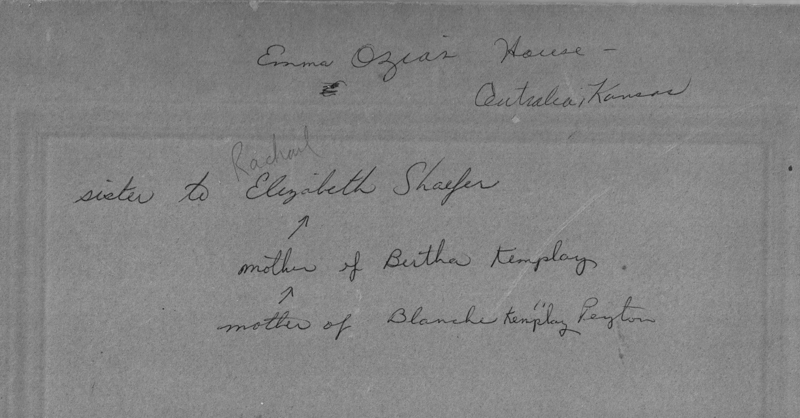 Emma Ozias House –
Centralia, Kansas
Rachael
sister to Elizabeth Shaefer
↑
mother of Bertha Kemplay
↑
mother of Blanche Kemplay Peyton